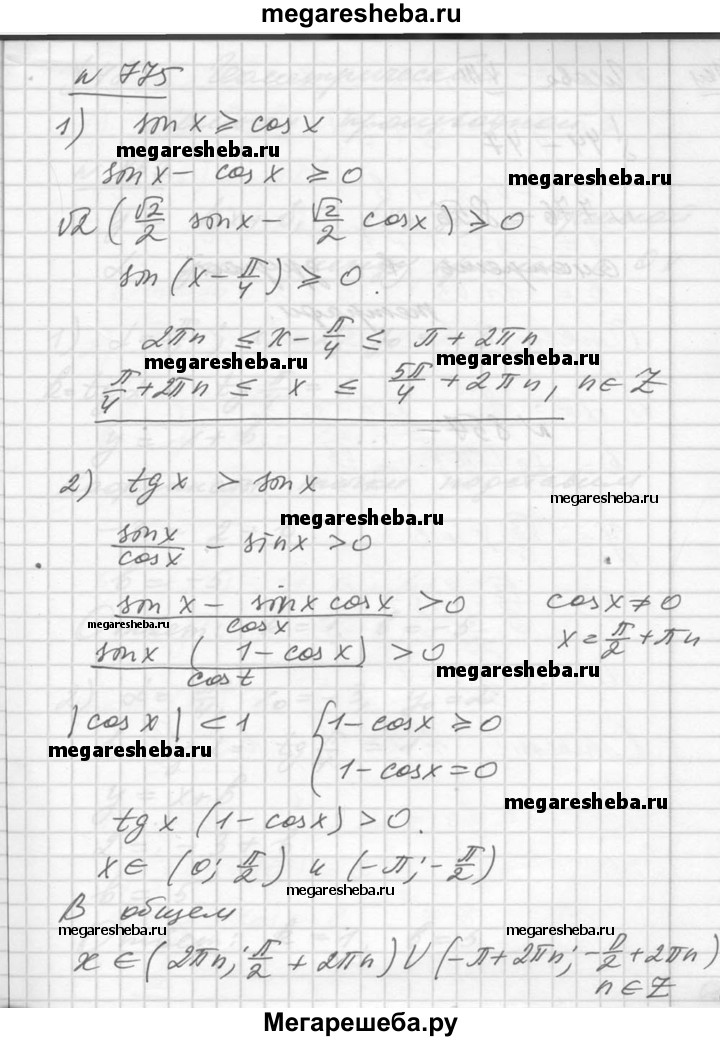 megaresheba.ru
n 775
1) sin x ≥ cos x
megaresheba.ru
sin x - cos x ≥ 0
megaresheba.ru
√2 ( √2/2 sin x - √2/2 cos x ) ≥ 0
sin (x - π/4) ≥ 0.
2πn ≤ x - π/4 ≤ π + 2πn
megaresheba.ru
megaresheba.ru
π/4 + 2πn ≤ x ≤ 5π/4 + 2πn, n ∈ Z
2) tg x > sin x
megaresheba.ru
megaresheba.ru
sin x / cos x - sin x > 0
megaresheba.ru
sin x - sin x cos x / cos x > 0 cos x ≠ 0
megaresheba.ru
x = π/2 + πn
sin x ( 1 - cos x ) / cos t > 0
megaresheba.ru
|cos x| < 1 { 1 - cos x ≥ 0
megaresheba.ru
1 - cos x = 0
megaresheba.ru
tg x (1 - cos x) > 0.
x ∈ (0; π/2) и (-π; -π/2)
megaresheba.ru
В общем
megaresheba.ru
megaresheba.ru
x ∈ (2πn; π/2 + 2πn) U (-π + 2πn; -π/2 + 2πn)
n ∈ Z
Мегарешеба.ру